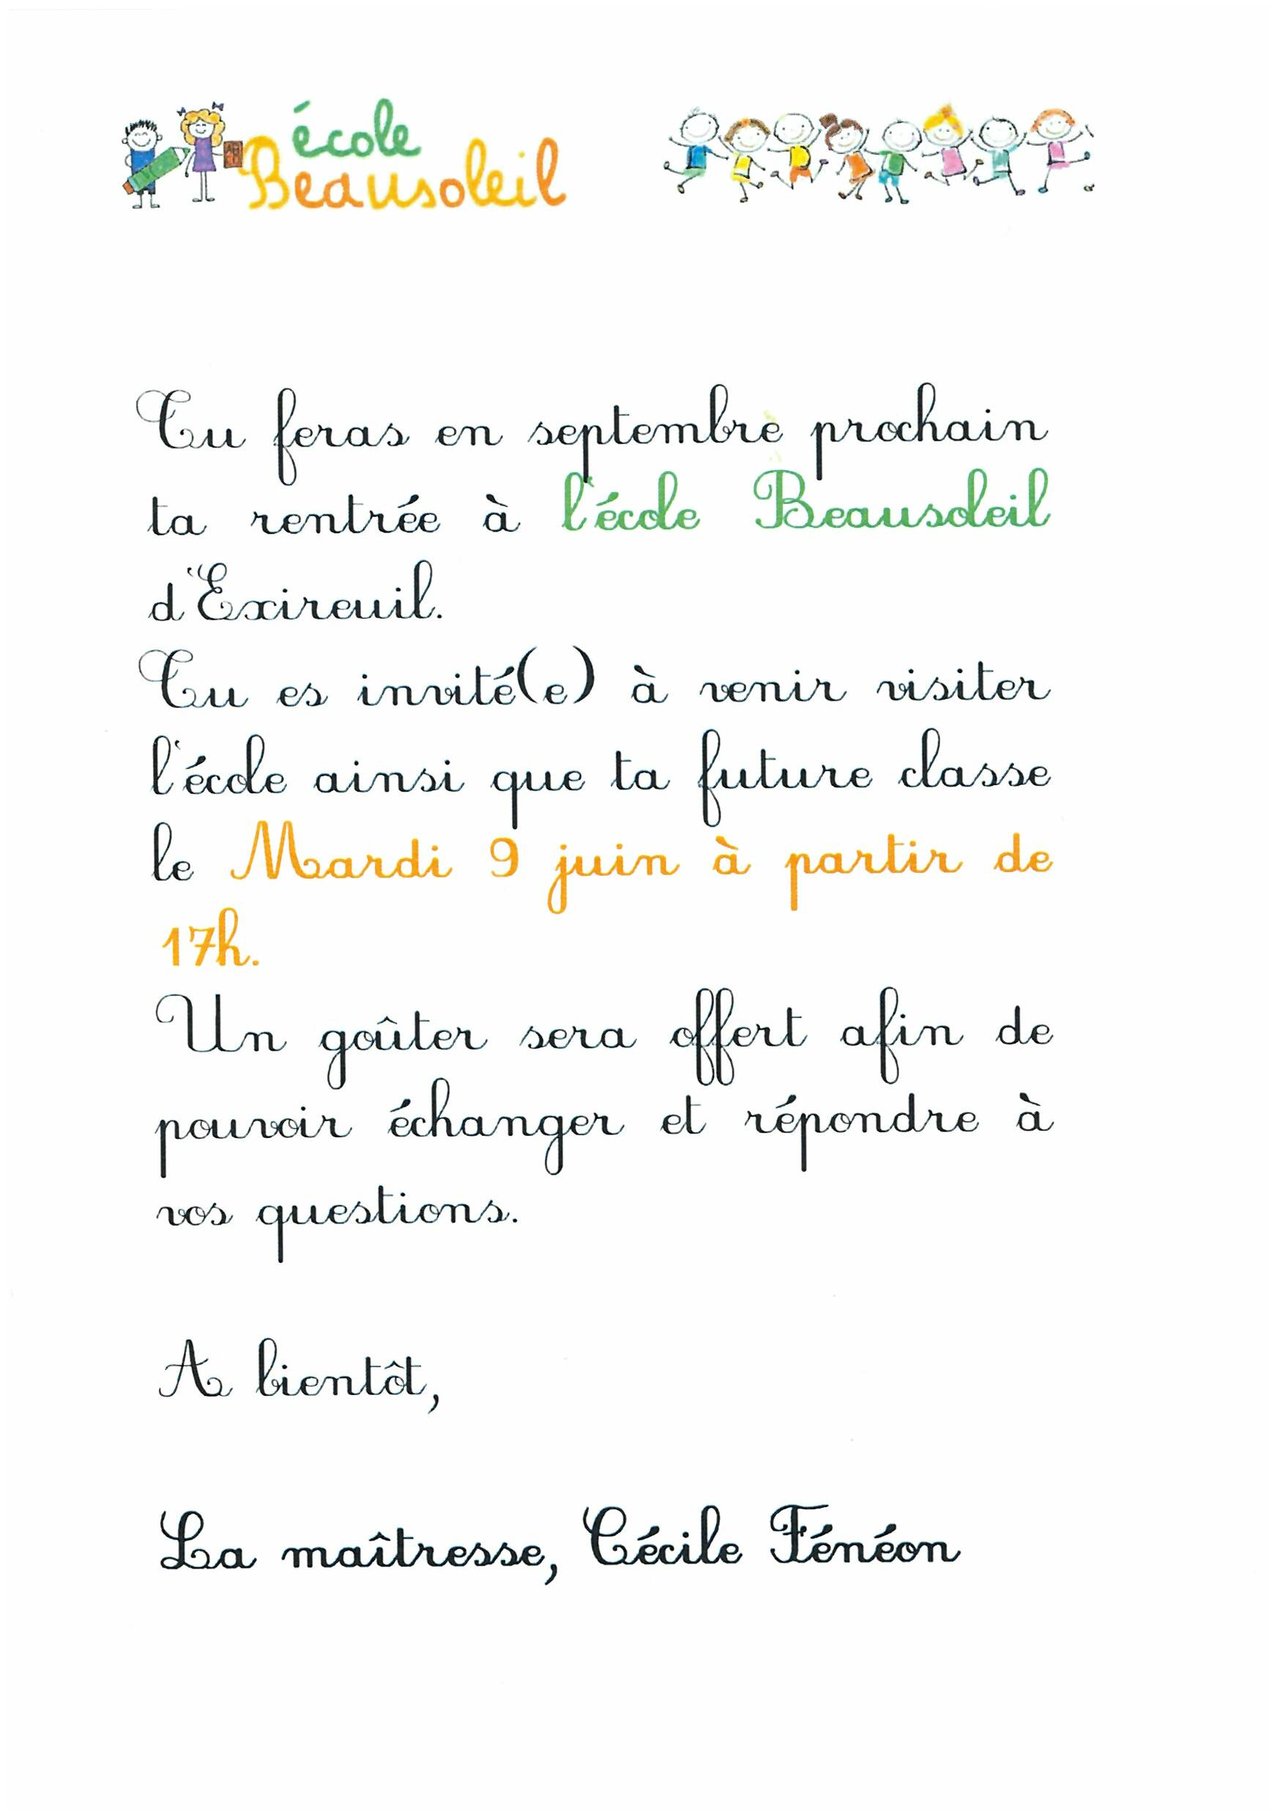 école
Beausoleil
Tu feras en septembre prochain
ta rentrée à l'école Beausoleil
d'Exireuil.
Tu es invité(e) à venir visiter
l'école ainsi que ta future classe
le Mardi 9 juin à partir de
17h.
Un goûter sera offert afin de
pouvoir échanger et répondre à
vos questions.
A bientôt,
La maîtresse, Cécile Fénéon